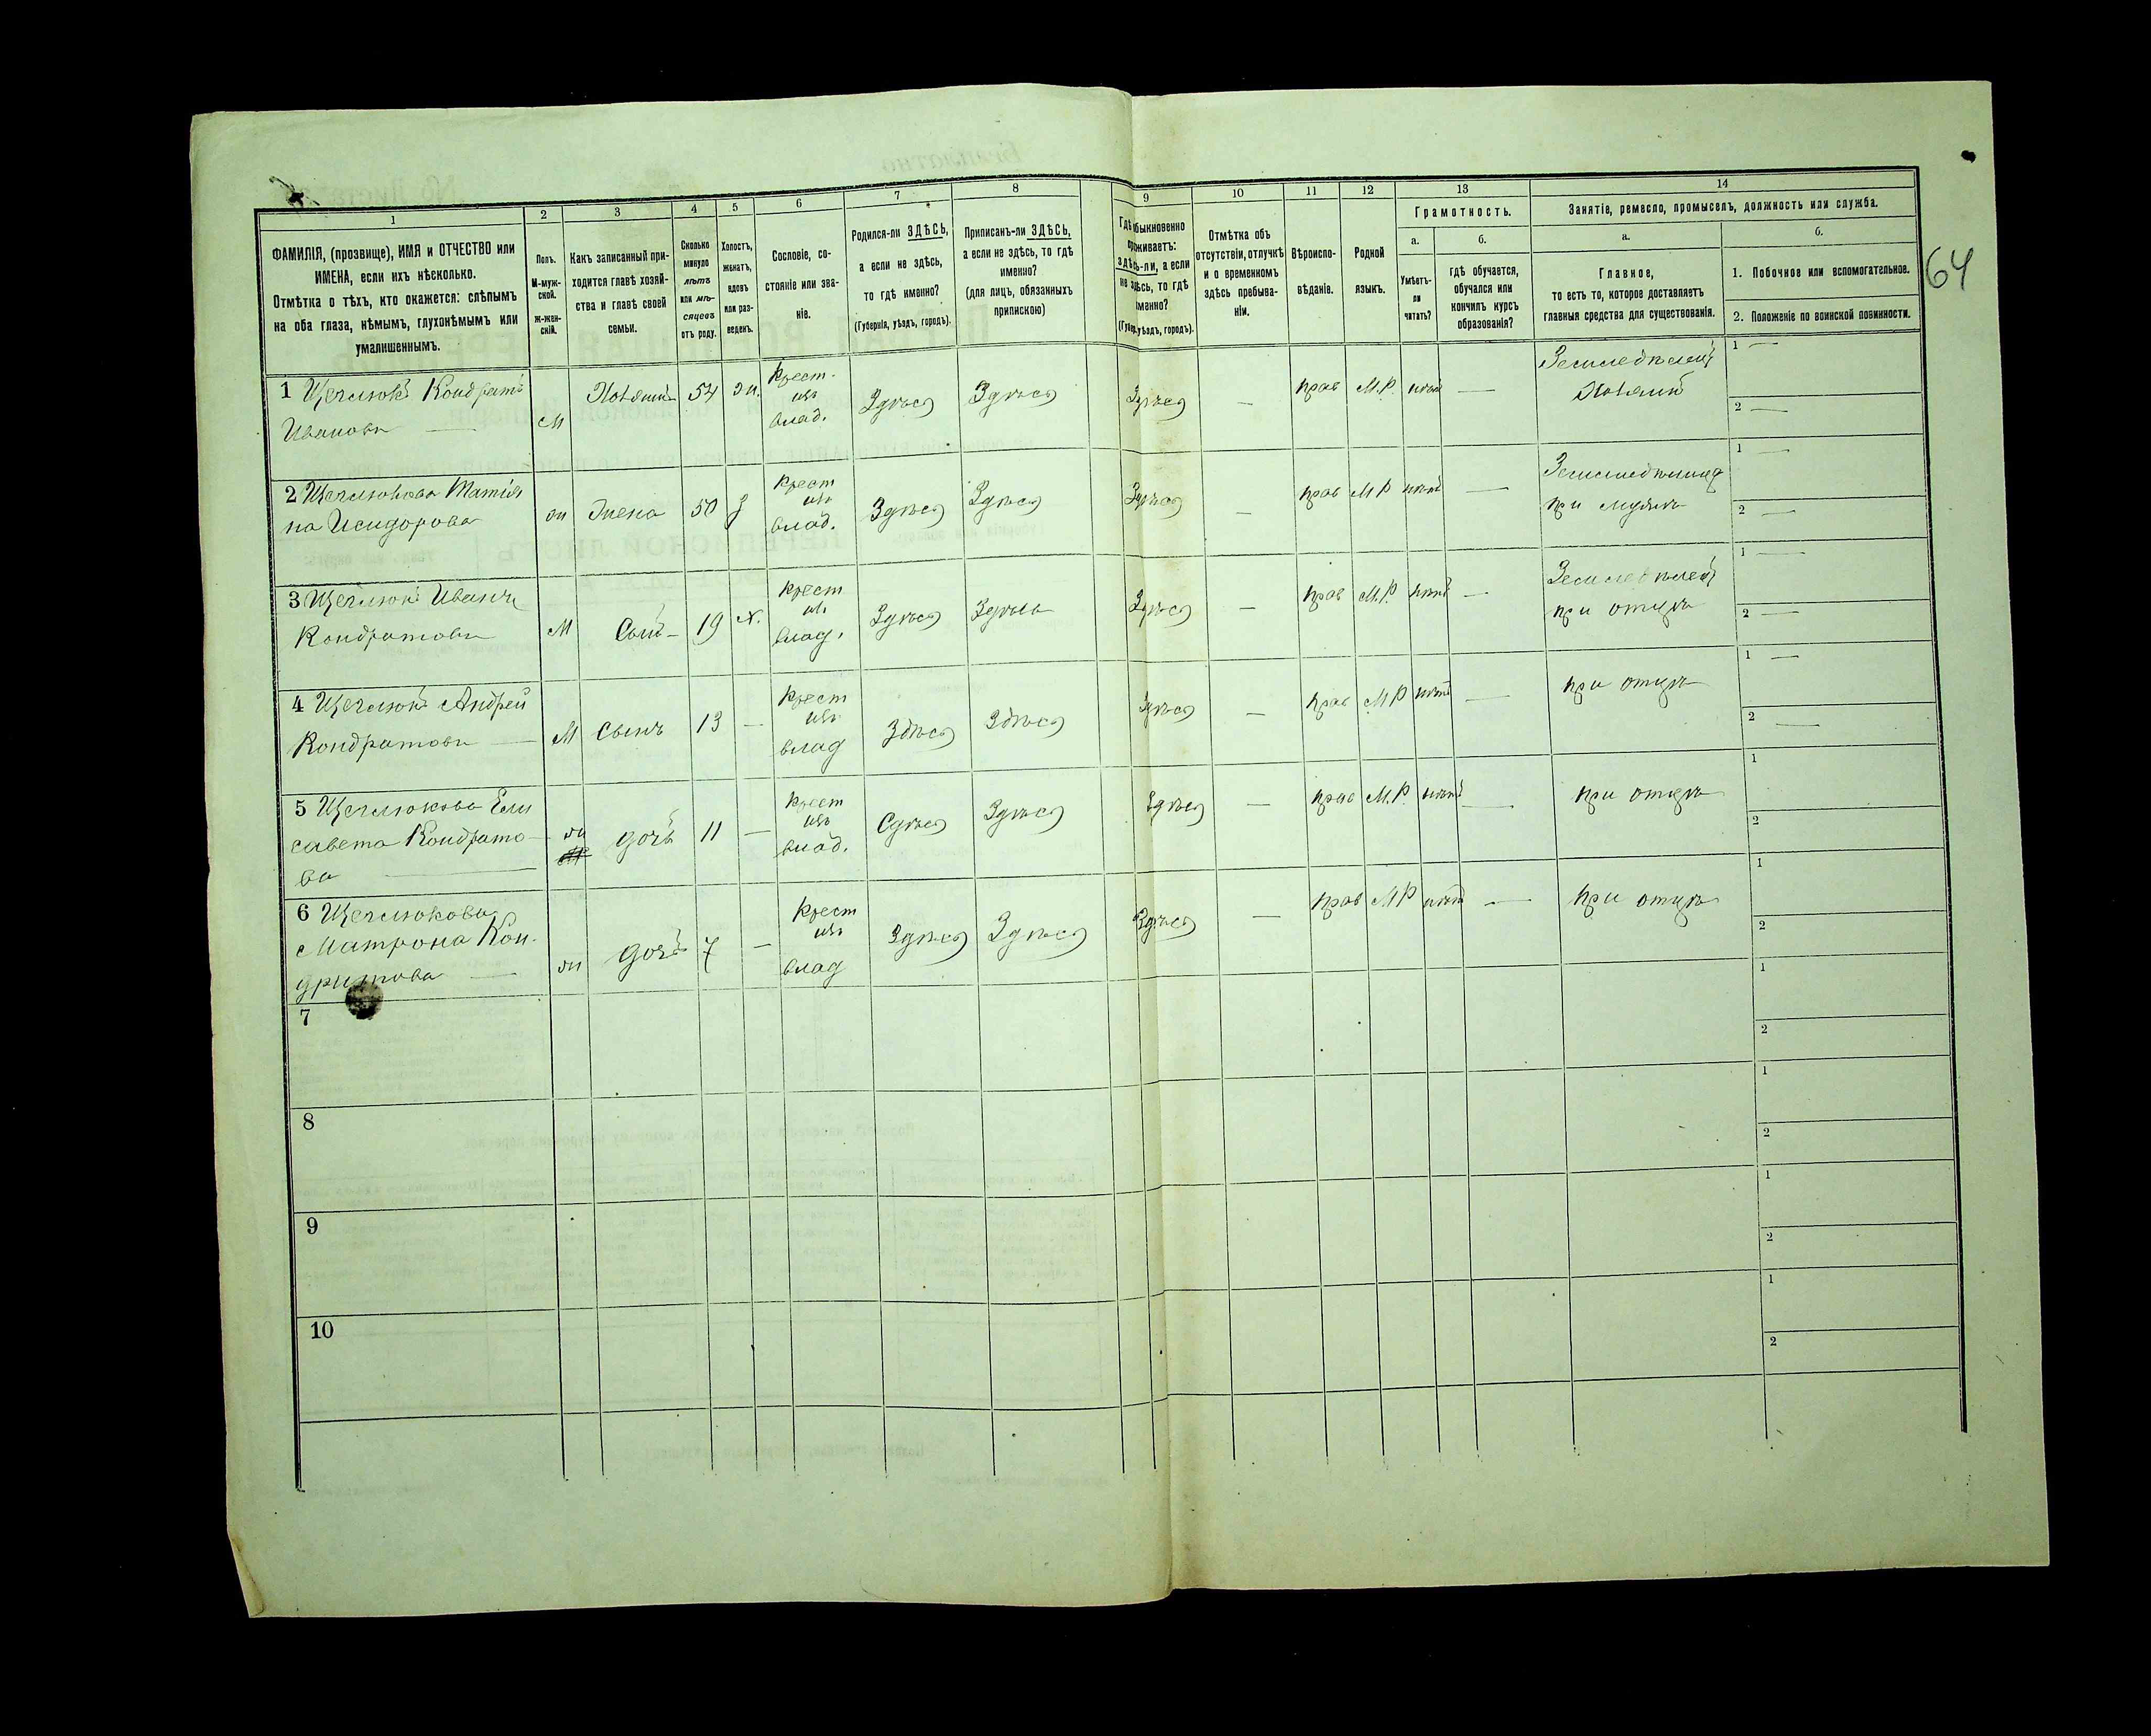 1 2 3 4 5 6 7 8 9 10 11 12 13 14
ФАМИЛІЯ, (прозвище), ИМЯ и ОТЧЕСТВО или
ИМЕНА, если ихъ нѣсколько.
Отмѣтка о тѣхъ, кто окажется: слѣпымъ
на оба глаза, нѣмымъ, глухонѣмымъ или
умалишеннымъ.
Полъ.
М-муж-
ской.
Ж-жен-
скій.
Какъ записанный при-
ходится главѣ хозяй-
ства и главѣ своей
семьи.
Сколько
минуло
лѣтъ
или мѣ-
сяцевъ
отъ роду.
Холостъ,
женатъ,
вдовъ
или раз-
веденъ.
Сословіе, со-
стояніе или зва-
ніе.
Родился-ли ЗДѢСЬ,
а если не здѣсь,
то гдѣ именно?
(Губернія, уѣздъ, городъ).
Приписанъ-ли ЗДѢСЬ,
а если не здѣсь, то гдѣ
именно?
(для лицъ, обязанныхъ
припискою)
Гдѣ обыкновенно
проживаетъ:
здѣсь-ли, а если
не здѣсь, то гдѣ
именно?
(Губер. уѣздъ, городъ).
Отмѣтка объ
отсутствіи, отлучкѣ
и о временномъ
здѣсь пребыва-
ніи.
Вѣроиспо-
вѣданіе.
Родной
языкъ.
Грамотность.
а.
Умѣетъ-
ли
читать?
б.
гдѣ обучается,
обучался или
кончилъ курсъ
образованія?
Занятіе, ремесло, промыселъ, должность или служба.
а.
Главное,
то есть то, которое доставляетъ
главныя средства для существованія.
б.
1. Побочное или вспомогательное.
2. Положеніе по воинской повинности.
64
1 Кондратъ
Ивановъ —
М
54
Крест.
изъ
влад.
Здѣсь Здѣсь Здѣсь — прав М.Р. нѣтъ —
1 —
2 —
2 Татія
на Исидорова
ж Жена 50 З
Крест
изъ
влад.
Здѣсь Здѣсь Здѣсь — прав М Р нѣтъ —
при мужѣ
1 —
2 —
3 Иванъ
Кондратовъ
М Сынъ 19 х.
Крест
изъ
влад.
Здѣсь Здѣсь Здѣсь — прав М.Р. нѣтъ —
при отцѣ
1 —
2 —
4 Андрей
Кондратовъ —
М Сынъ 13 —
Крест
изъ
влад
Здѣсь Здѣсь Здѣсь — прав М Р нѣтъ —
при отцѣ
1 —
2 —
5 Ели
савета Кондрато
ва —
ж дочь 11 —
Крест
изъ
влад.
Сдѣсь Здѣсь Здѣсь — прав М.Р. нѣтъ —
при отцѣ
1
2
6
Матрона Кон-
дратова —
ж дочь 7 —
Крест
изъ
влад
Здѣсь Здѣсь Здѣсь — прав М Р нѣтъ —
при отцѣ
1
2
7
1
2
8
1
2
9
1
2
10
1
2